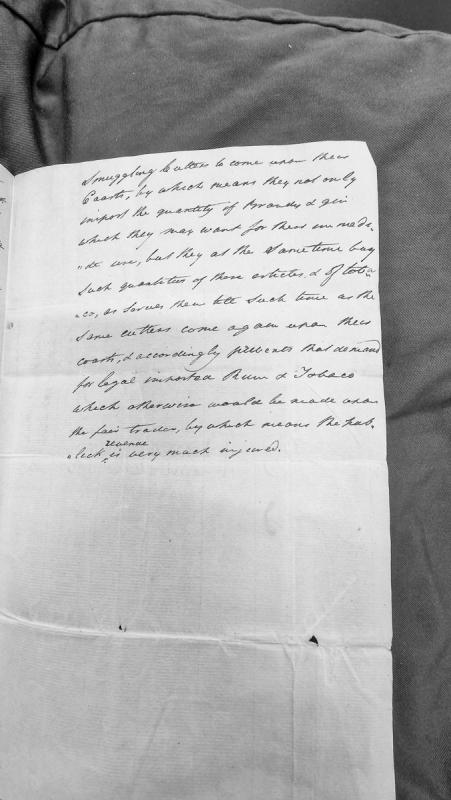 Smuggling Cutters to come upon their
Coasts, by which means they not only
import the quantity of Brandy & gin
which they may want for their immedi-
"ate use, but they at the same time buy
such quantities of those articles, & of toba-
"co, as serves them till such time as the
same cutters come again upon their
coasts, & accordingly prevents that demand
for legal imported Rum & Tobaco
which otherwise would be made upon
the fair trader, by which means the pub-
"lick revenue is very much injured.